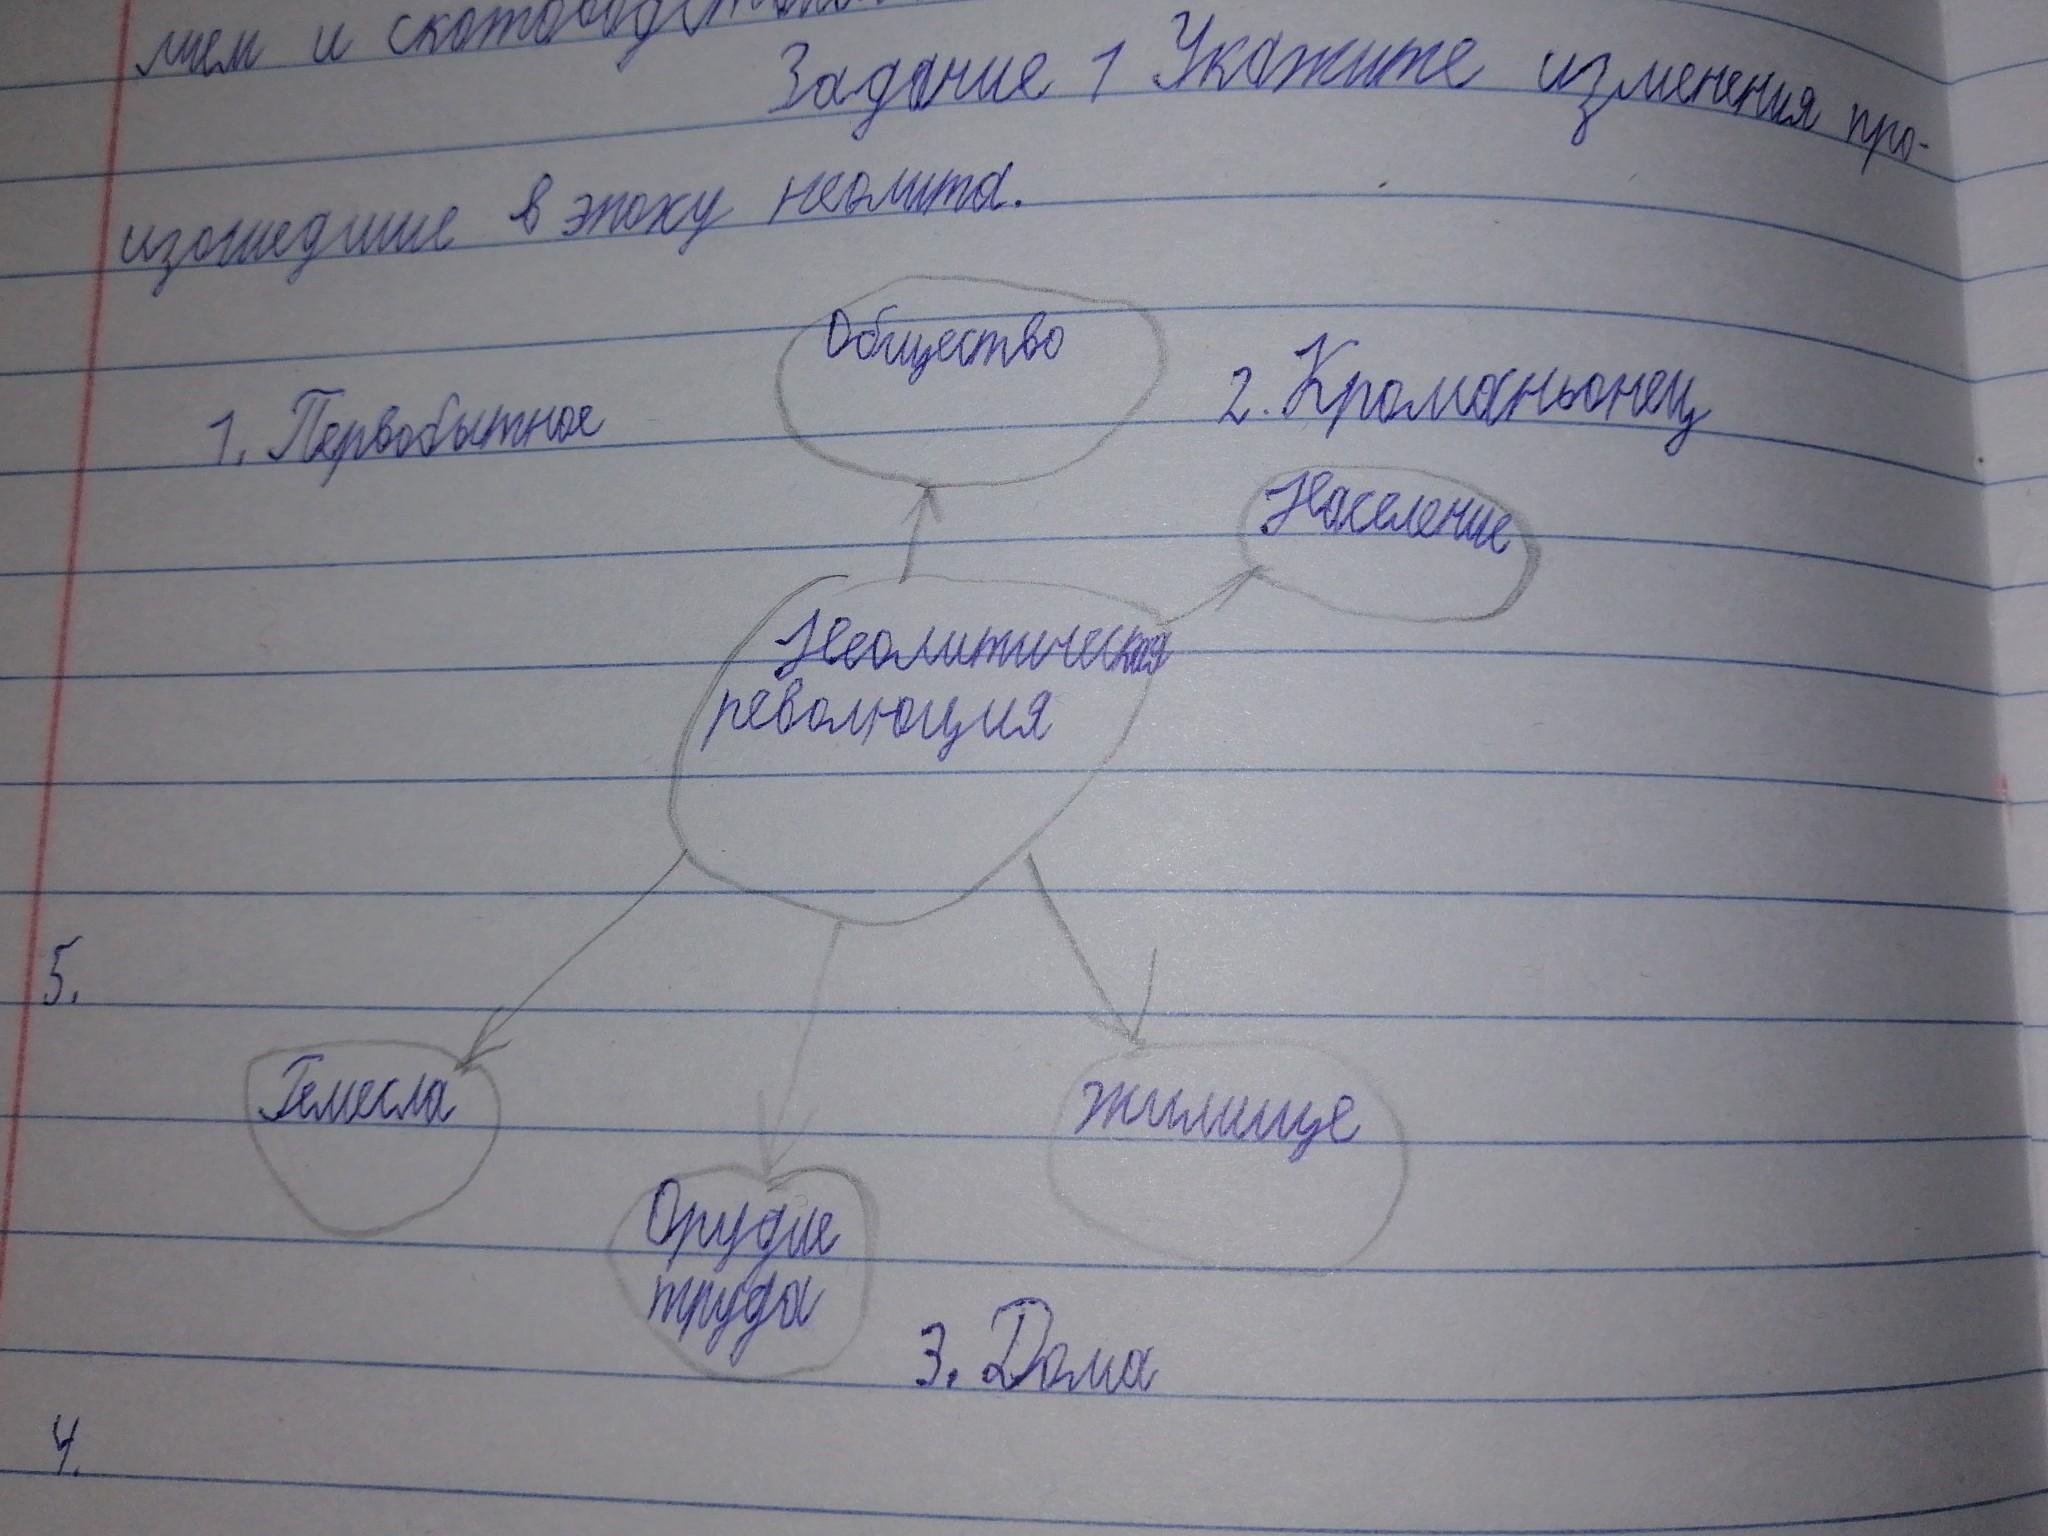 лием и скотоводством
Задание 1 Укажите изменения про-
изошедшие в эпоху неолита.
Общество
1. Первобытное
2. Кроманьонец
Население
Неолитическая
революция
5.
Гемесла
Жилище
Орудие
труда
3. Дома
4.